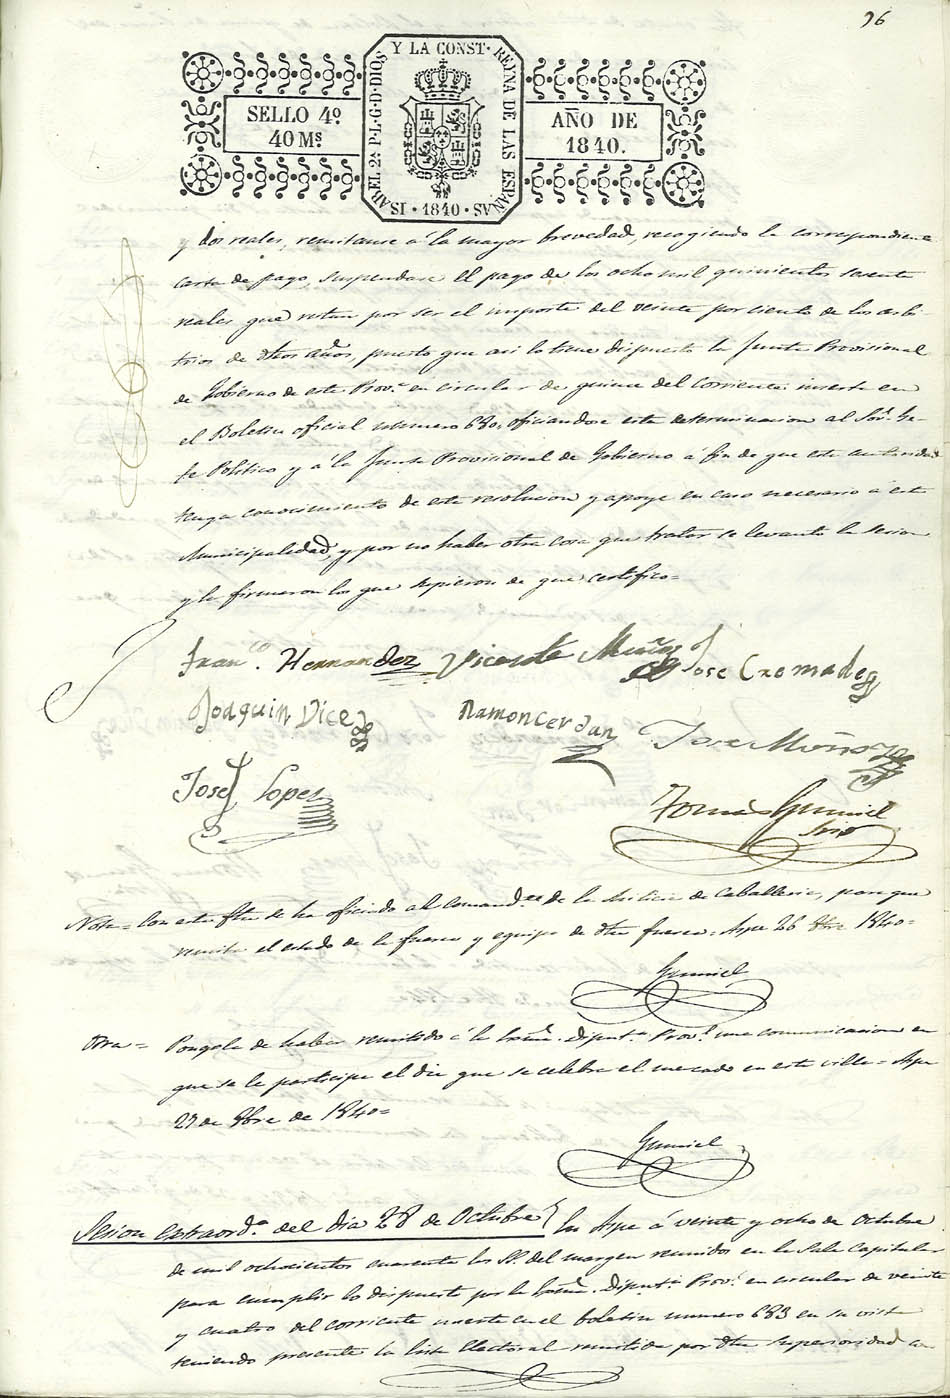 96
ISABEL 2ª P. L. G. D. DIOS Y LA CONST. REYNA DE LAS ESPAÑAS
· 1840 ·
SELLO 4º
40 Mˢ
AÑO DE
1840.
y dos reales, remitanse á la mayor brevedad, recogiendo la correspondiente
carta de pago, suspendase el pago de los ocho mil quinientos sesenta
reales que restan por ser el importe del veinte por ciento de los arbi-
trios de dhos años, puesto que asi lo tiene dispuesto la Junta Provisional
de Gobierno de esta Prov.ª en circular de quince del corriente inserta en
el Boletin oficial numero 680, oficiandose esta determinacion al Sor. Ge-
fe Politico y á la Junta Provisional de Gobierno á fin de que esta autoridad
tenga conocimiento de esta resolucion y apoye en caso necesario á esta
Municipalidad, y por no haber otra cosa que tratar se levantó la sesion
y la firmaron los que supieron de que certifico=
Franco. Hernandez Vicente Muñoz Jose Cremades
Joaquin Dicez Ramon Cerdan Jose Muñoz
Josef Lopez
Tomas Gumiel
Srio
Nota= Con esta fha se ha oficiado al Comand.te de la Milicia de Caballeria, para que
remita el estado de la fuerza y equipo de dha fuerza= Aspe 26 8bre 1840=
Gumiel
Otra= Pongola de haber remitido á la Exma. Diput.n Prov.l una comunicacion en
que se le participa el dia que se celebra el mercado en esta villa= Aspe
27 de 8bre de 1840=
Gumiel
Sesion extraord.ª del dia 28 de Octubre} En Aspe á veinte y ocho de Octubre
de mil ochocientos cuarenta los SS. del margen reunidos en la Sala Capitular
para cumplir lo dispuesto por la Exma. Diput.n Prov.l en circular de veinte
y cuatro del corriente inserta en el boletin numero 683 en su vista
teniendo presente la lista Electoral remitida por dha Superioridad